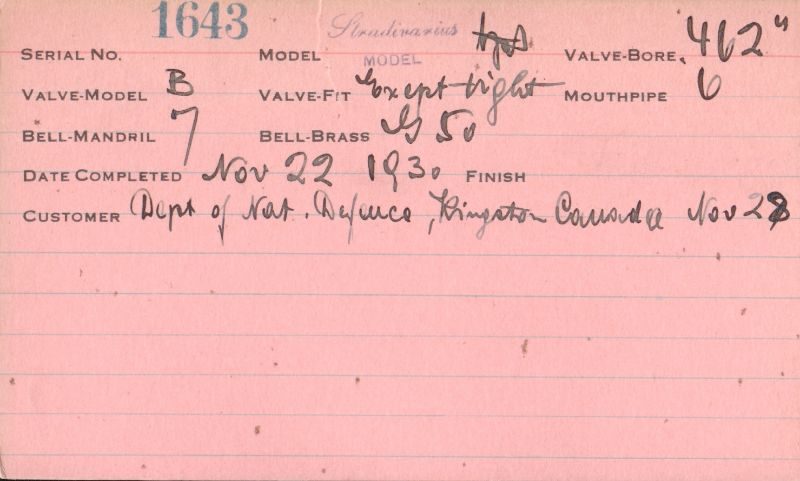 SERIAL NO. 1643 MODEL Stradivarius MODEL VALVE-BORE. 462"
VALVE-MODEL B VALVE-FIT Except tight MOUTHPIPE 6
BELL-MANDRIL 7 BELL-BRASS G 50
DATE COMPLETED Nov 22 1930 FINISH
CUSTOMER Dept of Nat. Defence, Kingston Canada Nov 28